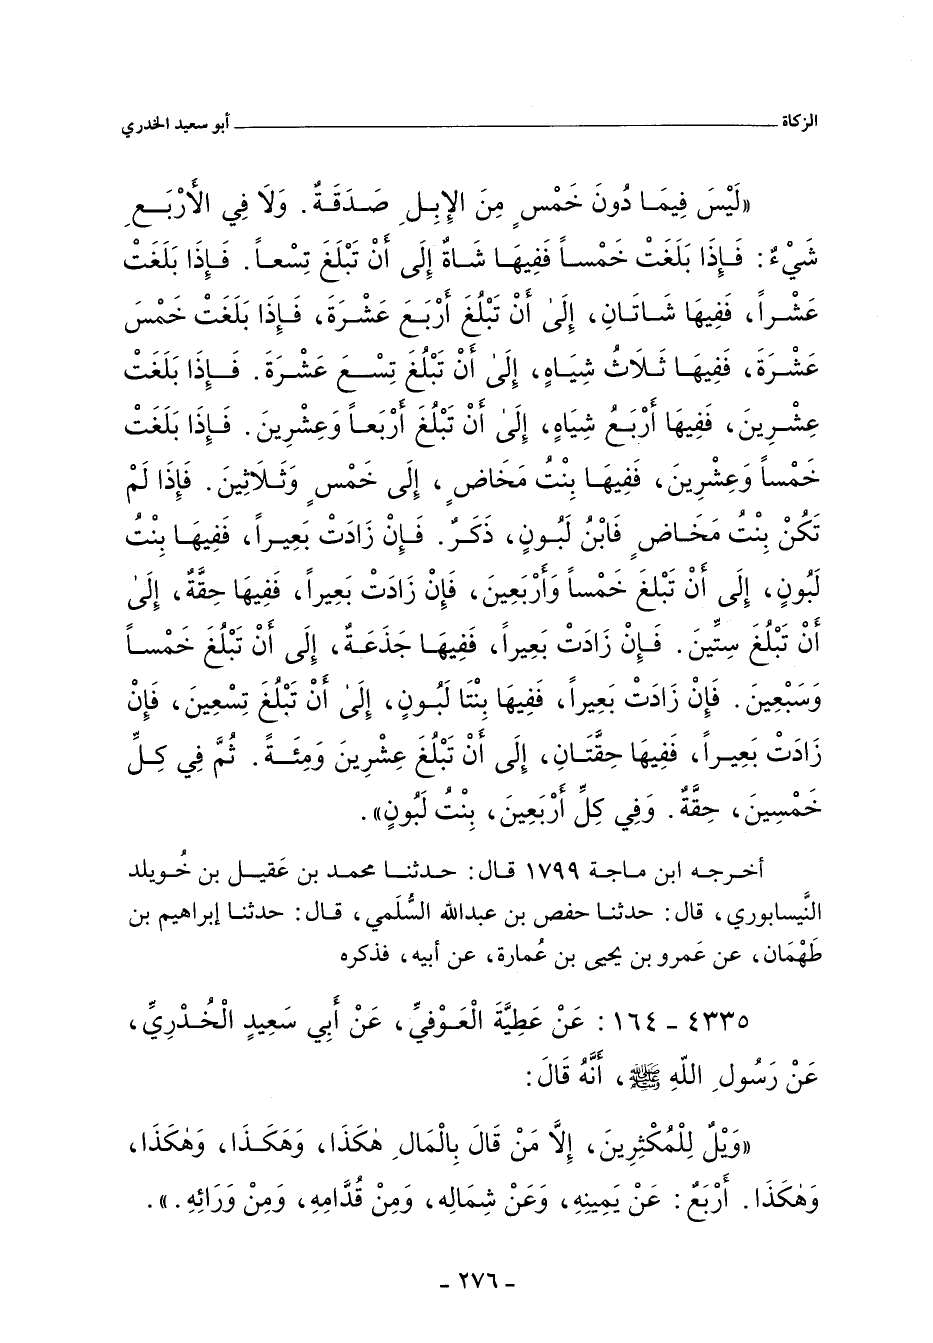 الزكاة ــــــــــ أبو سعيد الخدري
«لَيْسَ فِيمَا دُونَ خَمْسٍ مِنَ الإِبِلِ صَدَقَةٌ. وَلَا فِي الأَرْبَعِ
شَيْءٌ: فَإِذَا بَلَغَتْ خَمْساً فَفِيهَا شَاةٌ إِلَى أَنْ تَبْلُغَ تِسْعاً. فَإِذَا بَلَغَتْ
عَشْراً، فَفِيهَا شَاتَانِ، إِلَى أَنْ تَبْلُغَ أَرْبَعَ عَشْرَةَ، فَإِذَا بَلَغَتْ خَمْسَ
عَشْرَةَ، فَفِيهَا ثَلَاثُ شِيَاهٍ، إِلَى أَنْ تَبْلُغَ تِسْعَ عَشْرَةَ. فَإِذَا بَلَغَتْ
عِشْرِينَ، فَفِيهَا أَرْبَعُ شِيَاهٍ، إِلَى أَنْ تَبْلُغَ أَرْبَعاً وَعِشْرِينَ. فَإِذَا بَلَغَتْ
خَمْساً وَعِشْرِينَ، فَفِيهَا بِنْتُ مَخَاضٍ، إِلَى خَمْسٍ وَثَلَاثِينَ. فَإِذَا لَمْ
تَكُنْ بِنْتُ مَخَاضٍ فَابْنُ لَبُونٍ، ذَكَرٌ. فَإِنْ زَادَتْ بَعِيراً، فَفِيهَا بِنْتُ
لَبُونٍ، إِلَى أَنْ تَبْلُغَ خَمْساً وَأَرْبَعِينَ، فَإِنْ زَادَتْ بَعِيراً، فَفِيهَا حِقَّةٌ، إِلَى
أَنْ تَبْلُغَ سِتِّينَ. فَإِنْ زَادَتْ بَعِيراً، فَفِيهَا جَذَعَةٌ، إِلَى أَنْ تَبْلُغَ خَمْساً
وَسَبْعِينَ. فَإِنْ زَادَتْ بَعِيراً، فَفِيهَا بِنْتَا لَبُونٍ، إِلَى أَنْ تَبْلُغَ تِسْعِينَ، فَإِنْ
زَادَتْ بَعِيراً، فَفِيهَا حِقَّتَانِ، إِلَى أَنْ تَبْلُغَ عِشْرِينَ وَمِئَةً. ثُمَّ فِي كِلِّ
خَمْسِينَ، حِقَّةٌ. وَفِي كِلِّ أَرْبَعِينَ، بِنْتُ لَبُونٍ».
أخرجه ابن ماجة ١٧٩٩ قال: حدثنا محمد بن عَقيل بن خُويلد
النَّيسابوري، قال: حدثنا حفص بن عبدالله السُّلَمي، قال: حدثنا إبراهيم بن
طَهْمَان، عن عَمرو بن يحيى بن عُمارة، عن أبيه، فذكره
٤٣٣٥ - ١٦٤: عَنْ عَطِيَّةَ الْعَوْفِيِّ، عَنْ أَبِي سَعِيدٍ الْخُدْرِيِّ،
عَنْ رَسُولِ اللّهِ ﷺ، أَنَّهُ قَالَ:
«وَيْلٌ لِلْمُكْثِرِينَ، إِلَّا مَنْ قَالَ بِالْمَالِ هٰكَذَا، وَهَكَذَا، وَهٰكَذَا،
وَهٰكَذَا. أَرْبَعٌ: عَنْ يَمِينِهِ، وَعَنْ شِمَالِهِ، وَمِنْ قُدَّامِهِ، وَمِنْ وَرَائِهِ.».
- ٢٧٦ -